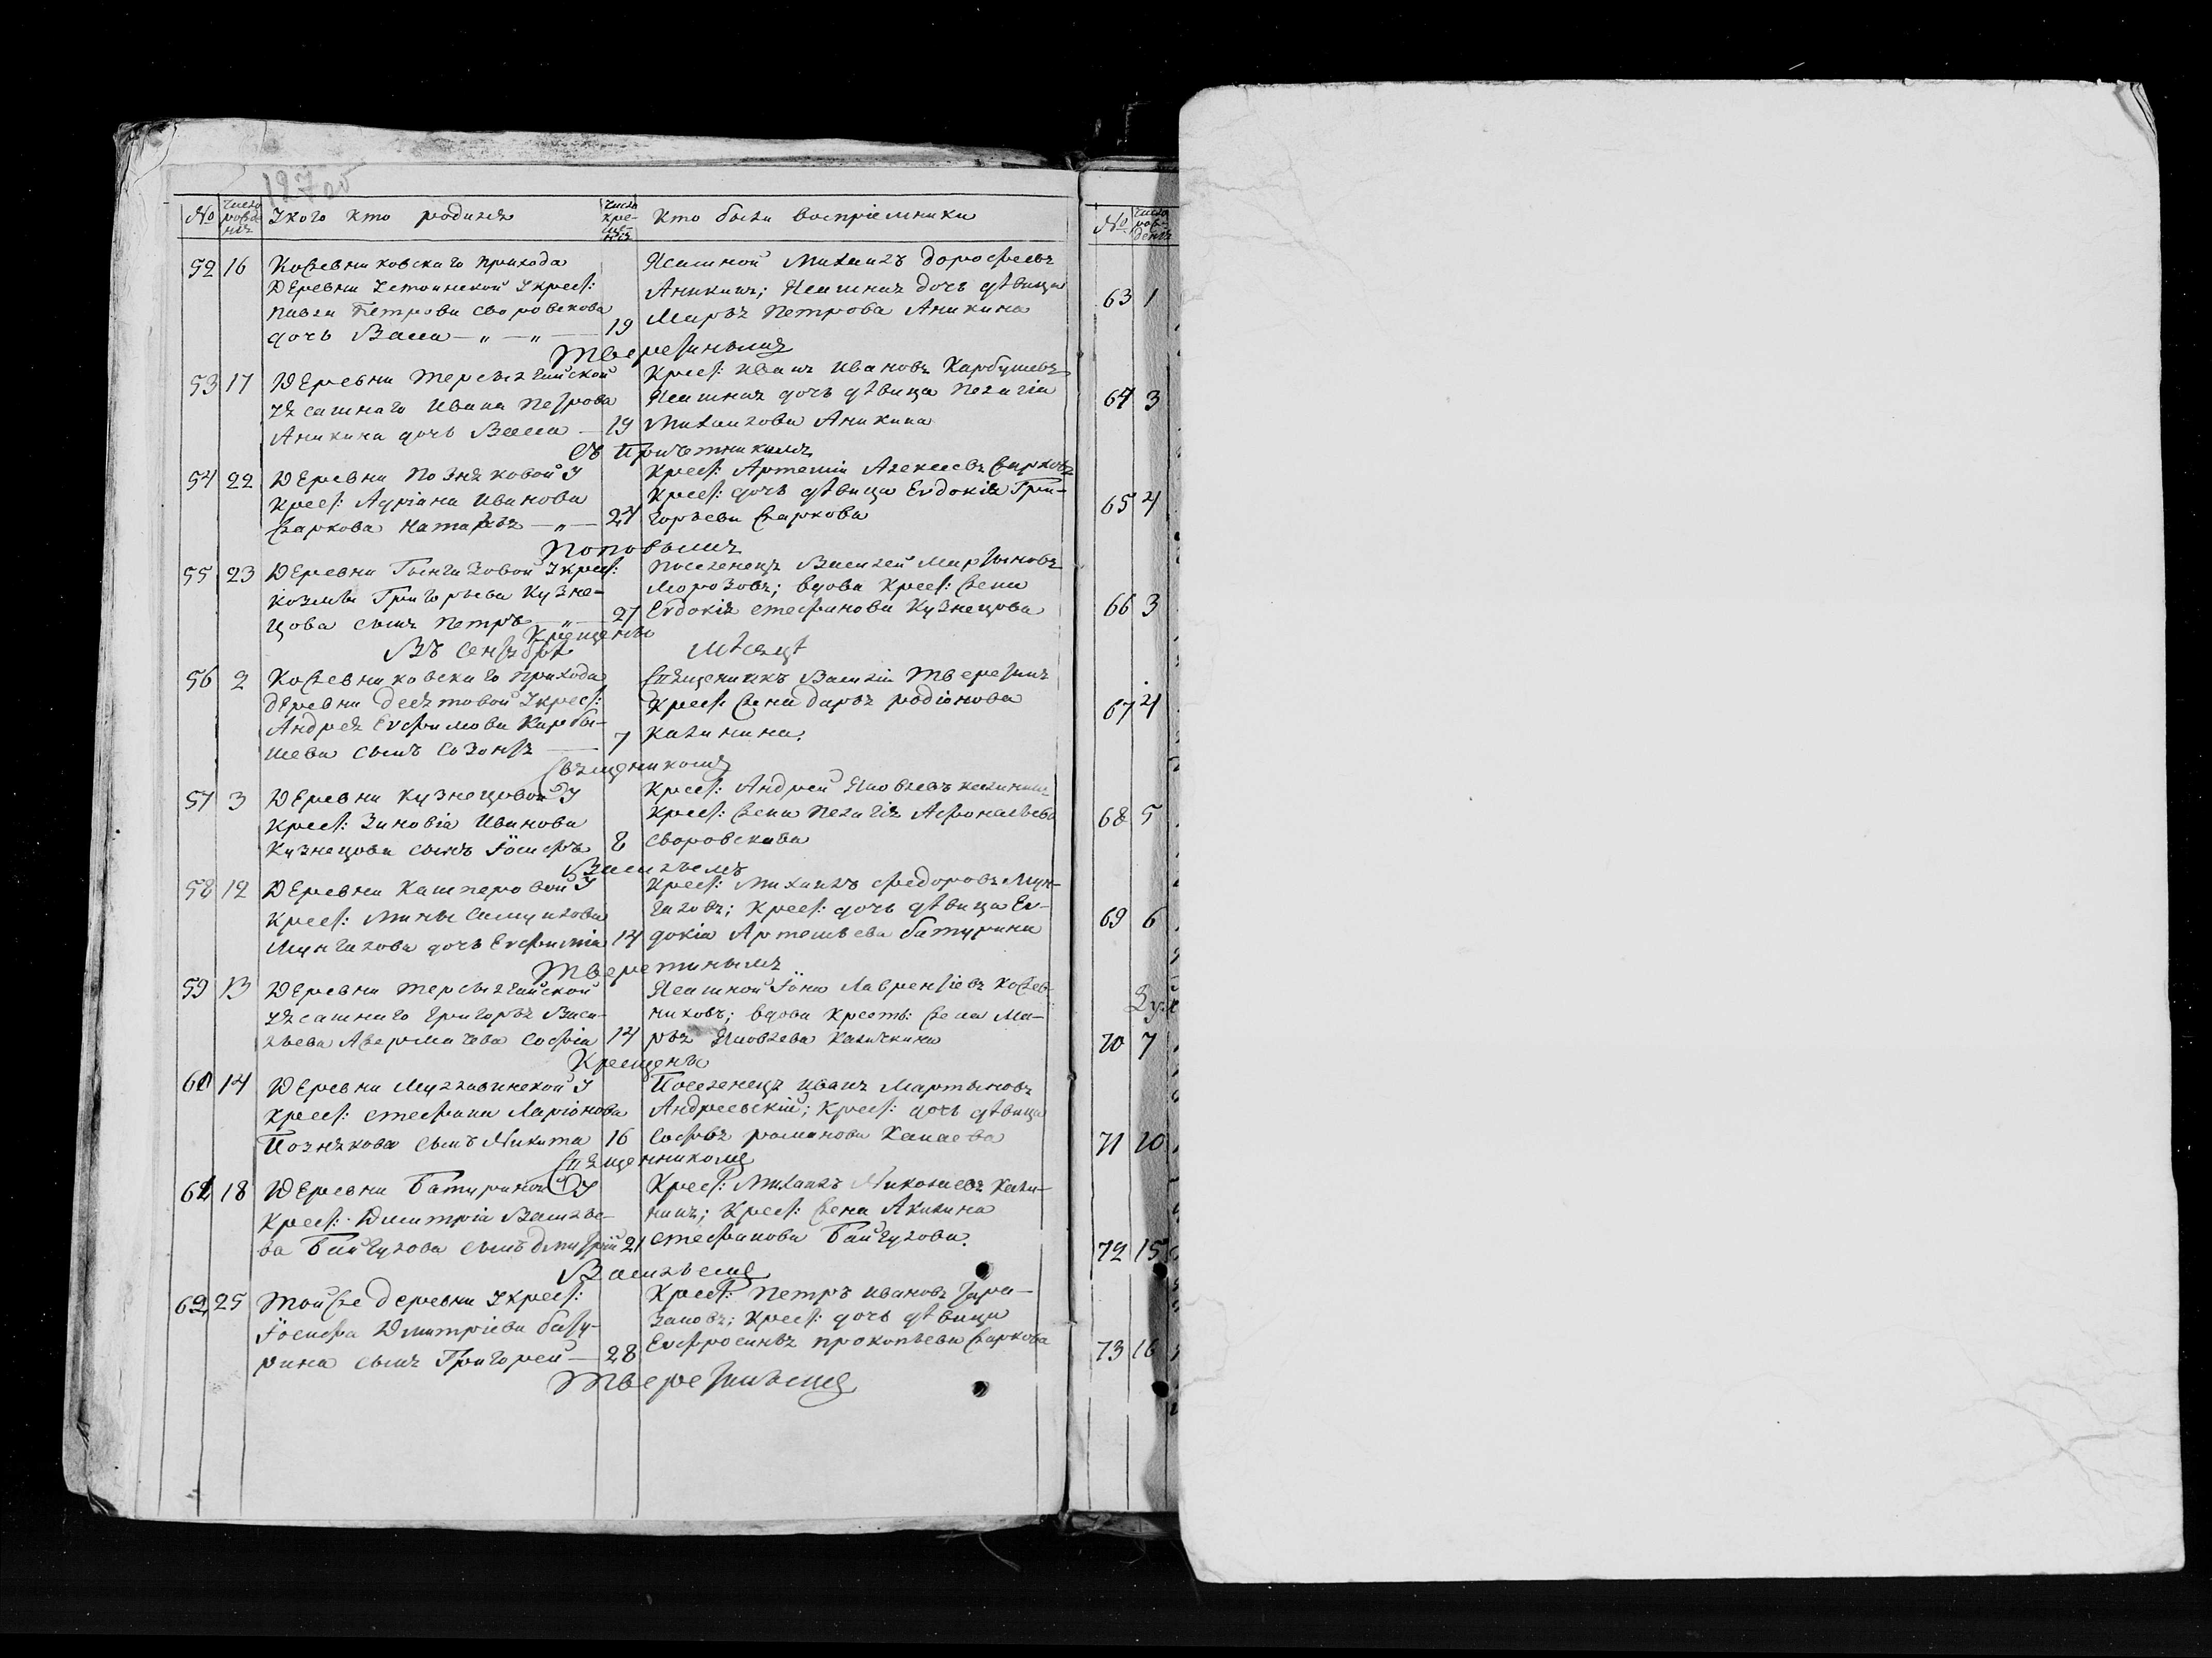 127 об
№ Число рожденія Укого кто родился Число крещенія Кто были воспріемники
52 16 Кожевниковскаго прихода
Деревни Уст У крест:
Павла Петрова Своровскова
дочь Васса — „ — „ — 19
Ясашной Михаилъ Дорофеевъ
Аникинъ; Ясашная дочь дѣвица
Марья Петрова Аникина
Тверетинымъ
53 17 Деревни Терсалгайской
У ясашнаго Ивана Петрова
Аникина дочь Васса — 19
Крест: Иванъ Ивановъ Карбушевъ
Ясашная дочь дѣвица Пелагіа
Михаилова Аникина
Съ Причетникамъ
54 22 Деревни Поздняковой У
Крест: Адріана Иванова
Жаркова Наталья — „ — 24
Крест: Артемій Алексеевъ Жарковъ
Крест: дочь дѣвица Евдокія Гри-
горьева Жаркова
Поповымъ
55 23 Деревни Тынгизовой У крест:
Козьмы Григорьева Кузне-
цова сынъ Петръ — „ — 27
Поселенецъ Василей Мартыновъ
Морозовъ; вдова крест: жена
Евдокія Стефанова Кузнецова
Крещены
Въ Сентябрѣ Мѣсяцѣ
56 2 Кожевниковскаго Прихода
деревни Десятовой У крест:
Андрея Евфимова Карбы-
шева сынъ Созонтъ — 7
Священникъ Василій Тверетинъ
Крест: жена Дарья Родіонова
Калинина.
Священникомъ
57 3 Деревни Кузнецовой У
Крест: Зиновіа Иванова
Кузнецова сынъ Іосифъ 8
Крест: Андрей Яковлевъ Калининъ
Крест: жена Пелагія Афонасьева
Своровскава
Васильемъ
58 12 Деревни Каштаровой У
Крест: Мины Самуилова
Мунгалова дочь Евфиміа 14
Крест: Михаилъ Федоровъ Мун-
галовъ; Крест: дочь дѣвица Ев-
докіа Артемьева Батурина
Тверетинымъ
59 13 Деревни Терсалгайской
У ясашнаго Григорья Васи-
льева Аверма Софіа 14
Ясашной Іона Лаврентіевъ Кожев-
никовъ; вдова Крестъ: жена Ма-
рья Яковлева Калачкина
Крещены
60 14 Деревни Муллавинской У
Крест: Стефана Ларіонова
Познякова сынъ Никита 16
Поселенецъ Иванъ Мартыновъ
Андреевскій; Крест: дочь дѣвица
Софья Романова Капаева
Священникомъ
61 18 Деревни Батуриной У
Крест: Димитріа Василье-
ва Байгулова сынъ Дмитрій 21
Крест: Михаилъ Николаевъ Кали-
нинъ; Крест: жена Акилина
Стефанова Байгулова.
Васильемъ
62 25 Той же деревни У крест:
Іосифа Дмитріева Бату-
рина сынъ Григорей — 28
Крест: Петръ Ивановъ Тара-
зановъ; Крест: дочь дѣвица
Евфросинья Прокопьева Жаркова
Тверетинымъ
№ Число рожденія
63 1
64 3
65 4
66 3
67 4
68 5
69 6
70 7
71 10
72 15
73 16